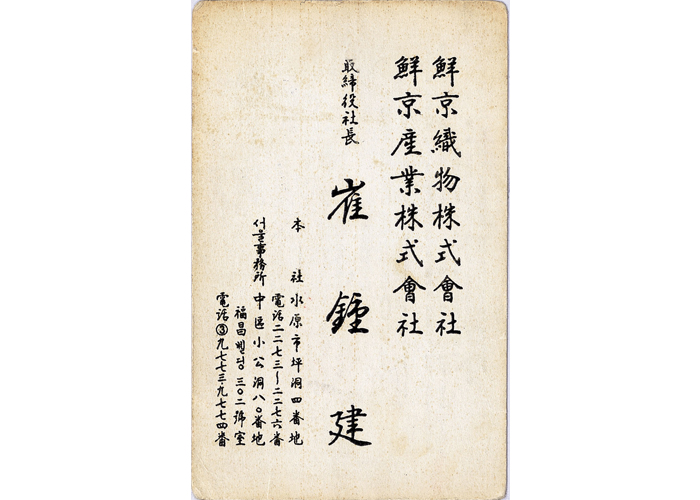 鮮京織物株式會社
鮮京産業株式會社
取締役社長
崔鍾建
本社 水原市坪洞四番地
電話二二七三~二二七六番
서울事務所 中區小公洞八〇番地
福昌빌딩三〇二號室
電話③九七七三·九七七四番